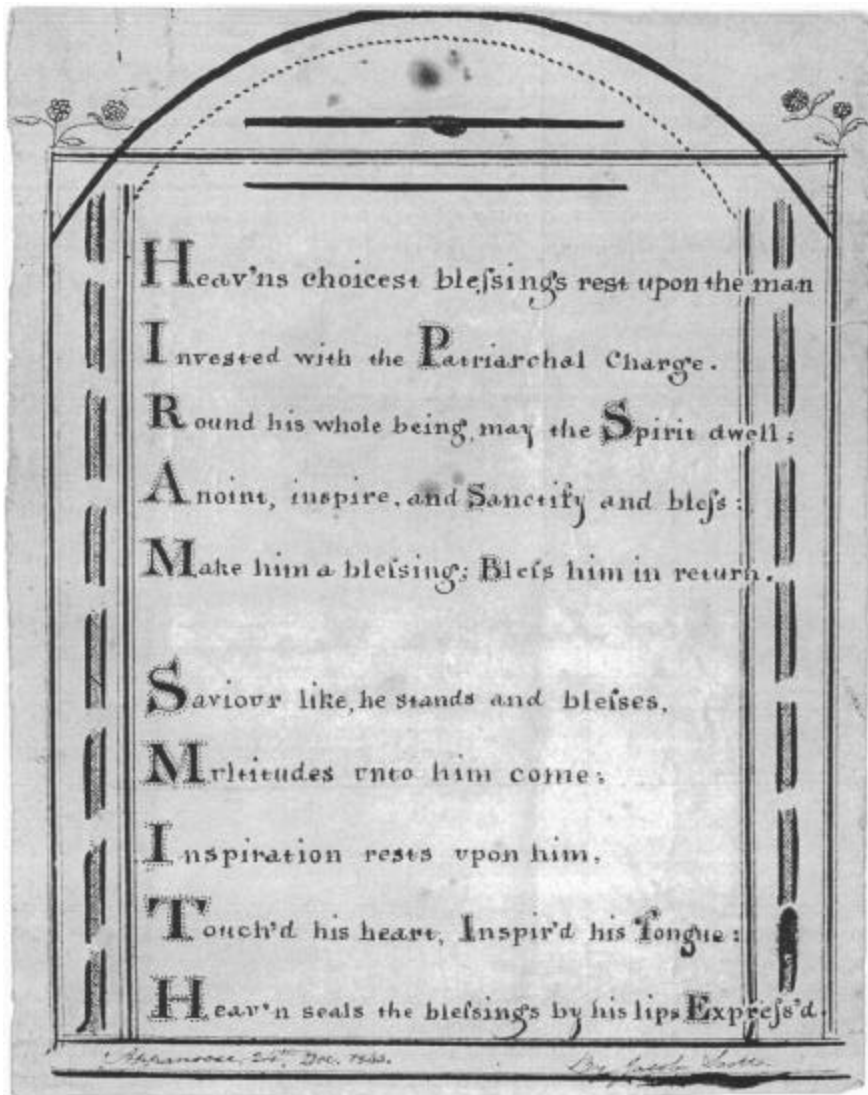 Heav'ns choicest bleſsings rest upon the man
Invested with the Patriarchal Charge.
Round his whole being, may the Spirit dwell;
Anoint, inspire, and Sanctify and bleſs:
Make him a bleſsing; Bleſs him in return.
Saviovr like, he stands and bleſses,
Mvltitudes vnto him come;
Inspiration rests vpon him,
Touch'd his heart, Inspir'd his Tongue:
Heav'n seals the bleſsings by his lips Expreſs'd.
Appanoose, 24th Dec.
By Jacob Scott